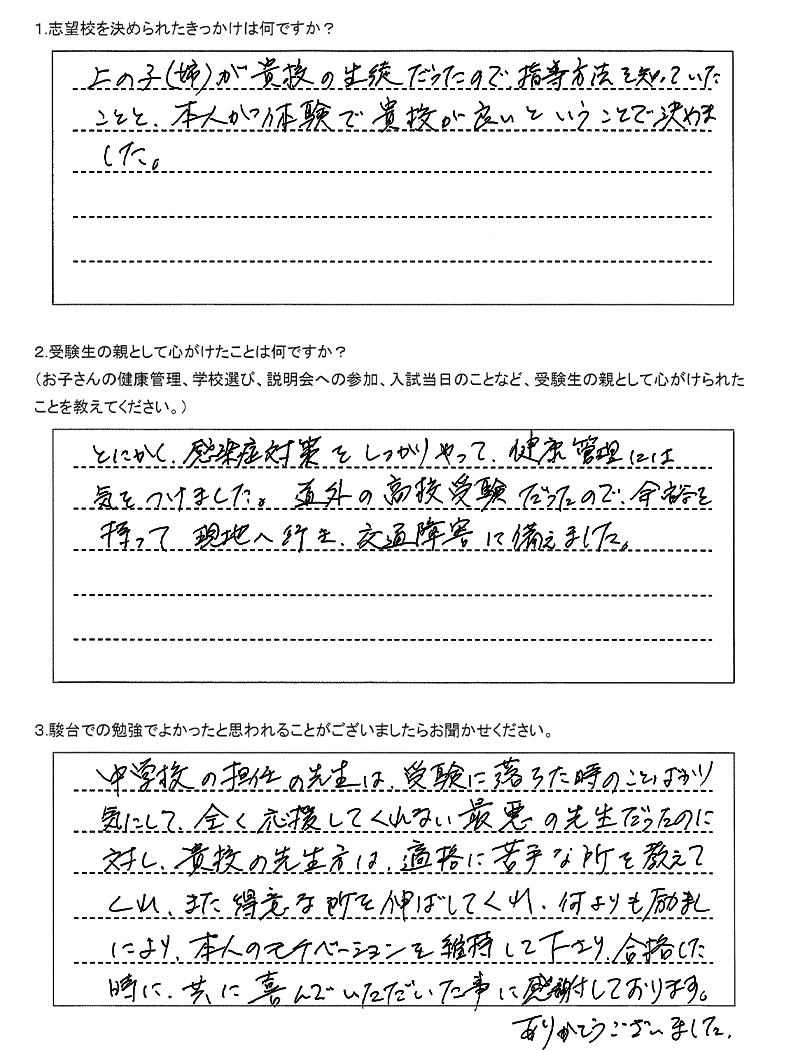 1.志望校を決められたきっかけは何ですか？
上の子(姉)が貴校の生徒だったので、指導方法を知っていた
ことと、本人が体験で貴校が良いということで決めま
した。
2.受験生の親として心がけたことは何ですか？
（お子さんの健康管理、学校選び、説明会への参加、入試当日のことなど、受験生の親として心がけられた
ことを教えてください。）
とにかく、感染症対策をしっかりやって、健康管理には
気をつけました。道外の高校受験だったので、余裕を
持って現地へ行き、交通障害に備えました。
3.駿台での勉強でよかったと思われることがございましたらお聞かせください。
中学校の担任の先生は、受験に落ちた時のことばかり
気にして、全く応援してくれない最悪の先生だったのに
対し、貴校の先生方は、適格に苦手な所を教えて
くれ、また得意な所を伸ばしてくれ、何よりも励まし
により、本人のモチベーションを維持して下さり、合格した
時に、共に喜んでいただいた事に感謝しております。
ありがとうございました。